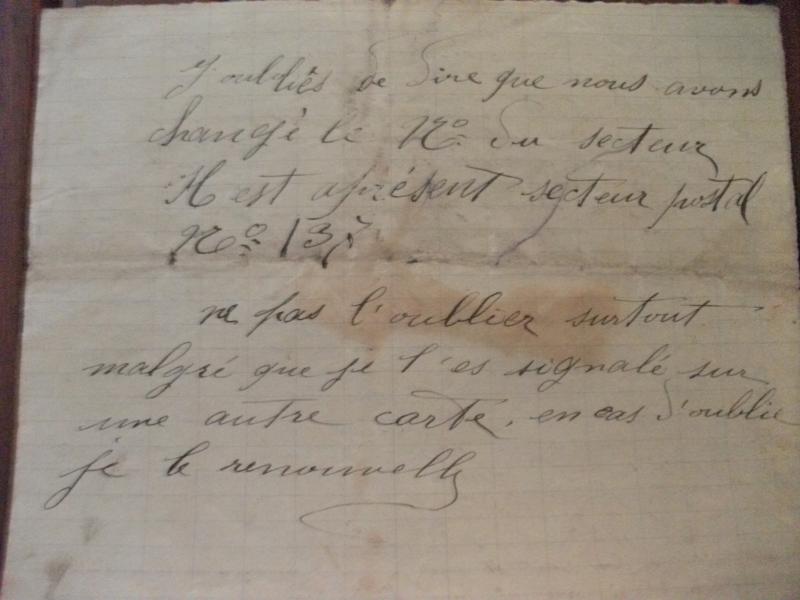 J'oubliés de dire que nous avons
changé le No du secteur
Il est aprésent secteur postal
No 137
ne pas l'oublier surtout
malgré que je l'es signalé sur
une autre carte, en cas d'oublie
je le renouvelle